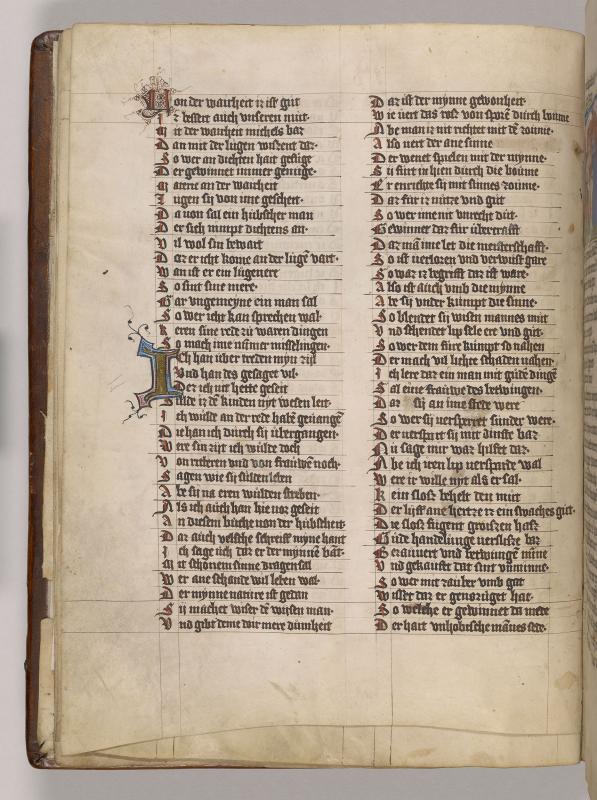 Von der warheit iz ist gut
Ir bessert auch vnseren mut·
Mit der warheit michels baz
Dan mit der lugen wizent daz·
So wer an dichten hait gefuge
Der gewinnet immer genuge·
Matere an der warheit
Lugen sij von ime gescheit·
Da von sal ein hubscher man
Der sich nimpt dichtens an·
Vil wol sin bewart
Daz er icht kome an der lugē vart·
Wan ist er ein lugenere
So sint sine mere·
Gar vngemeyne ein man sal
So wer icht kan sprechen wal·
Keren sine rede zu waren dingen
So mach ime nūmer misselingen·
Ich han uber treden myn zijt
Vnd han des gesaget vil·
Der ich nit hette geseit
Wilde iz dē kinden nyt wesen leit·
Ich wulde an der rede habē geuangē
Die han ich durch sij ubergangen·
Were sin zijt ich wulde doch
Von ritteren vnd von frauwen noch·
Sagen wie sij sulden leben
Abe sij na eren wulden streben·
Als ich auch han hie vor geseit
An diesem buche von der hubscheit·
Daz auch velsche schreiff myne hant
Ich sage uch daz er der mynnen bāt·
Mit schonem sinne dragen sal
Wer ane schande wil leben wal·
Der mynne nature ist gedan
Sij machet wiser dē wijsen man·
Vnd gibt deme doir mere dumheit
Daz ist der mynne gewonheit·
Wie vert das rosz von sporē durch boume
Abe man iz nit richtet mit dē zoume·
Also vert der ane sinne
Der wenet spielen mit der mynne·
Sij furt in hien durch die boume
Er enrichte sij mit sinnes zoume·
Daz fur iz nutze vnd gut
So wer ime nit vnrecht dut·
Gewinnet daz fur ubercrafft
Daz mā ime let die meisterschafft·
So ist verlozen vnd verwust gare
So waz iz begrifft daz ist ware·
Also ist auch vmb die mynne
Abe sij vnder kumpt die sinne·
So blendet sij wisen mannes mut
Vnd schendet lip sele ere vnd gut·
So wer dem fure kumpt so nahen
Der mach vil lichte schaden nahen·
Ich lere daz ein man mit gudē dingē
Sal eine frauwe des betwingen·
Daz sij an ime stede were
So wer sij versperret sunder were·
Der verspart sij mit dinste baz
Nu sage mir waz hilffet daz·
Abe ich iren lip versparde wal
Were ir wille nyt als er sal·
Kein slosz behelt den mut
Der lijff ane hertze iz ein swaches gut·
Die slosz fugent groiszen hasz
Gude handelunge verslisze baz
Gezauuert vnd betwungen mine
Vnd gekauffet daz sint vnminne·
So wer mit zauber vmb gat
Wisset daz er genozuget hat·
So welche er gewinnet da mede
Der hait vnhobische mānes sede·